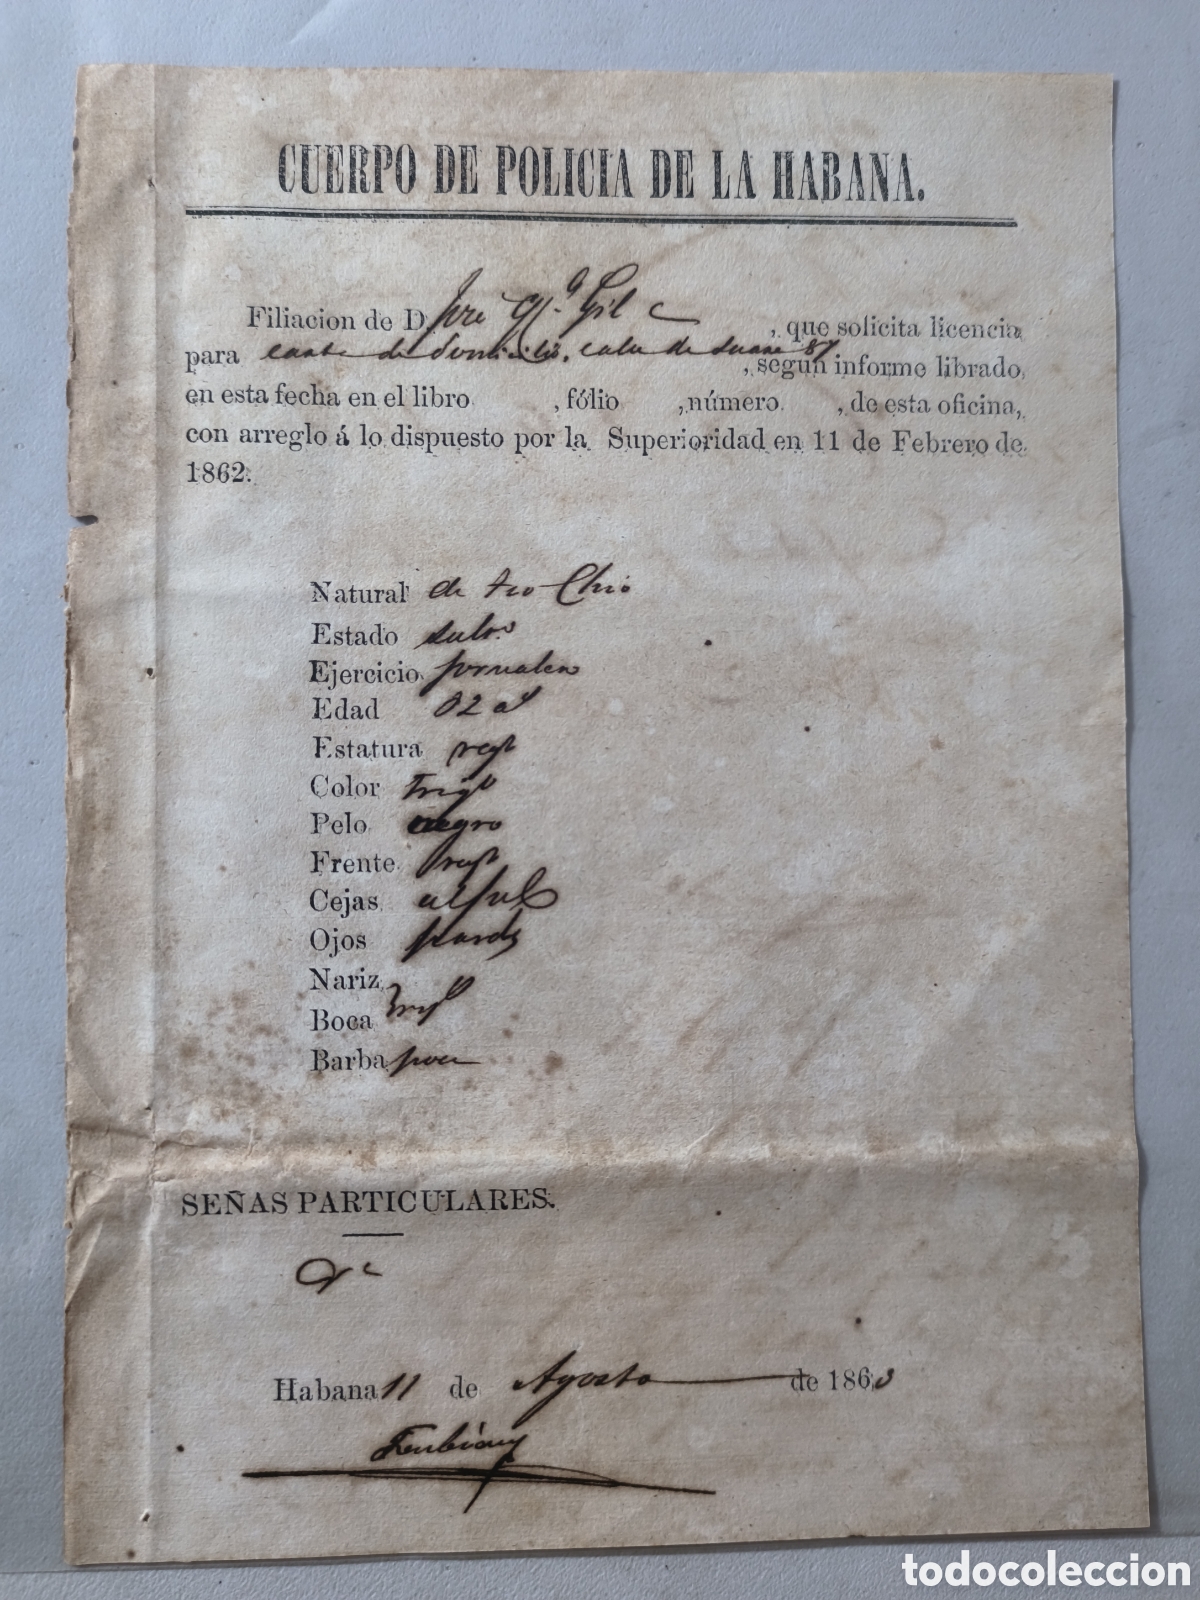 CUERPO DE POLICIA DE LA HABANA.
Filiacion de D. José Gil , que solicita licencia
para carta de domicilio, calle de 87 , segun informe librado
en esta fecha en el libro , fólio , número , de esta oficina,
con arreglo á lo dispuesto por la Superioridad en 11 de Febrero de
1862.
Natural de
Estado solto
Ejercicio jornalero
Edad
Estatura regr
Color Trigo
Pelo negro
Frente regr
Cejas al pelo
Ojos pardos
Nariz
Boca
Barba poca
SEÑAS PARTICULARES.
Habana 11 de Agosto de 1863
todocoleccion